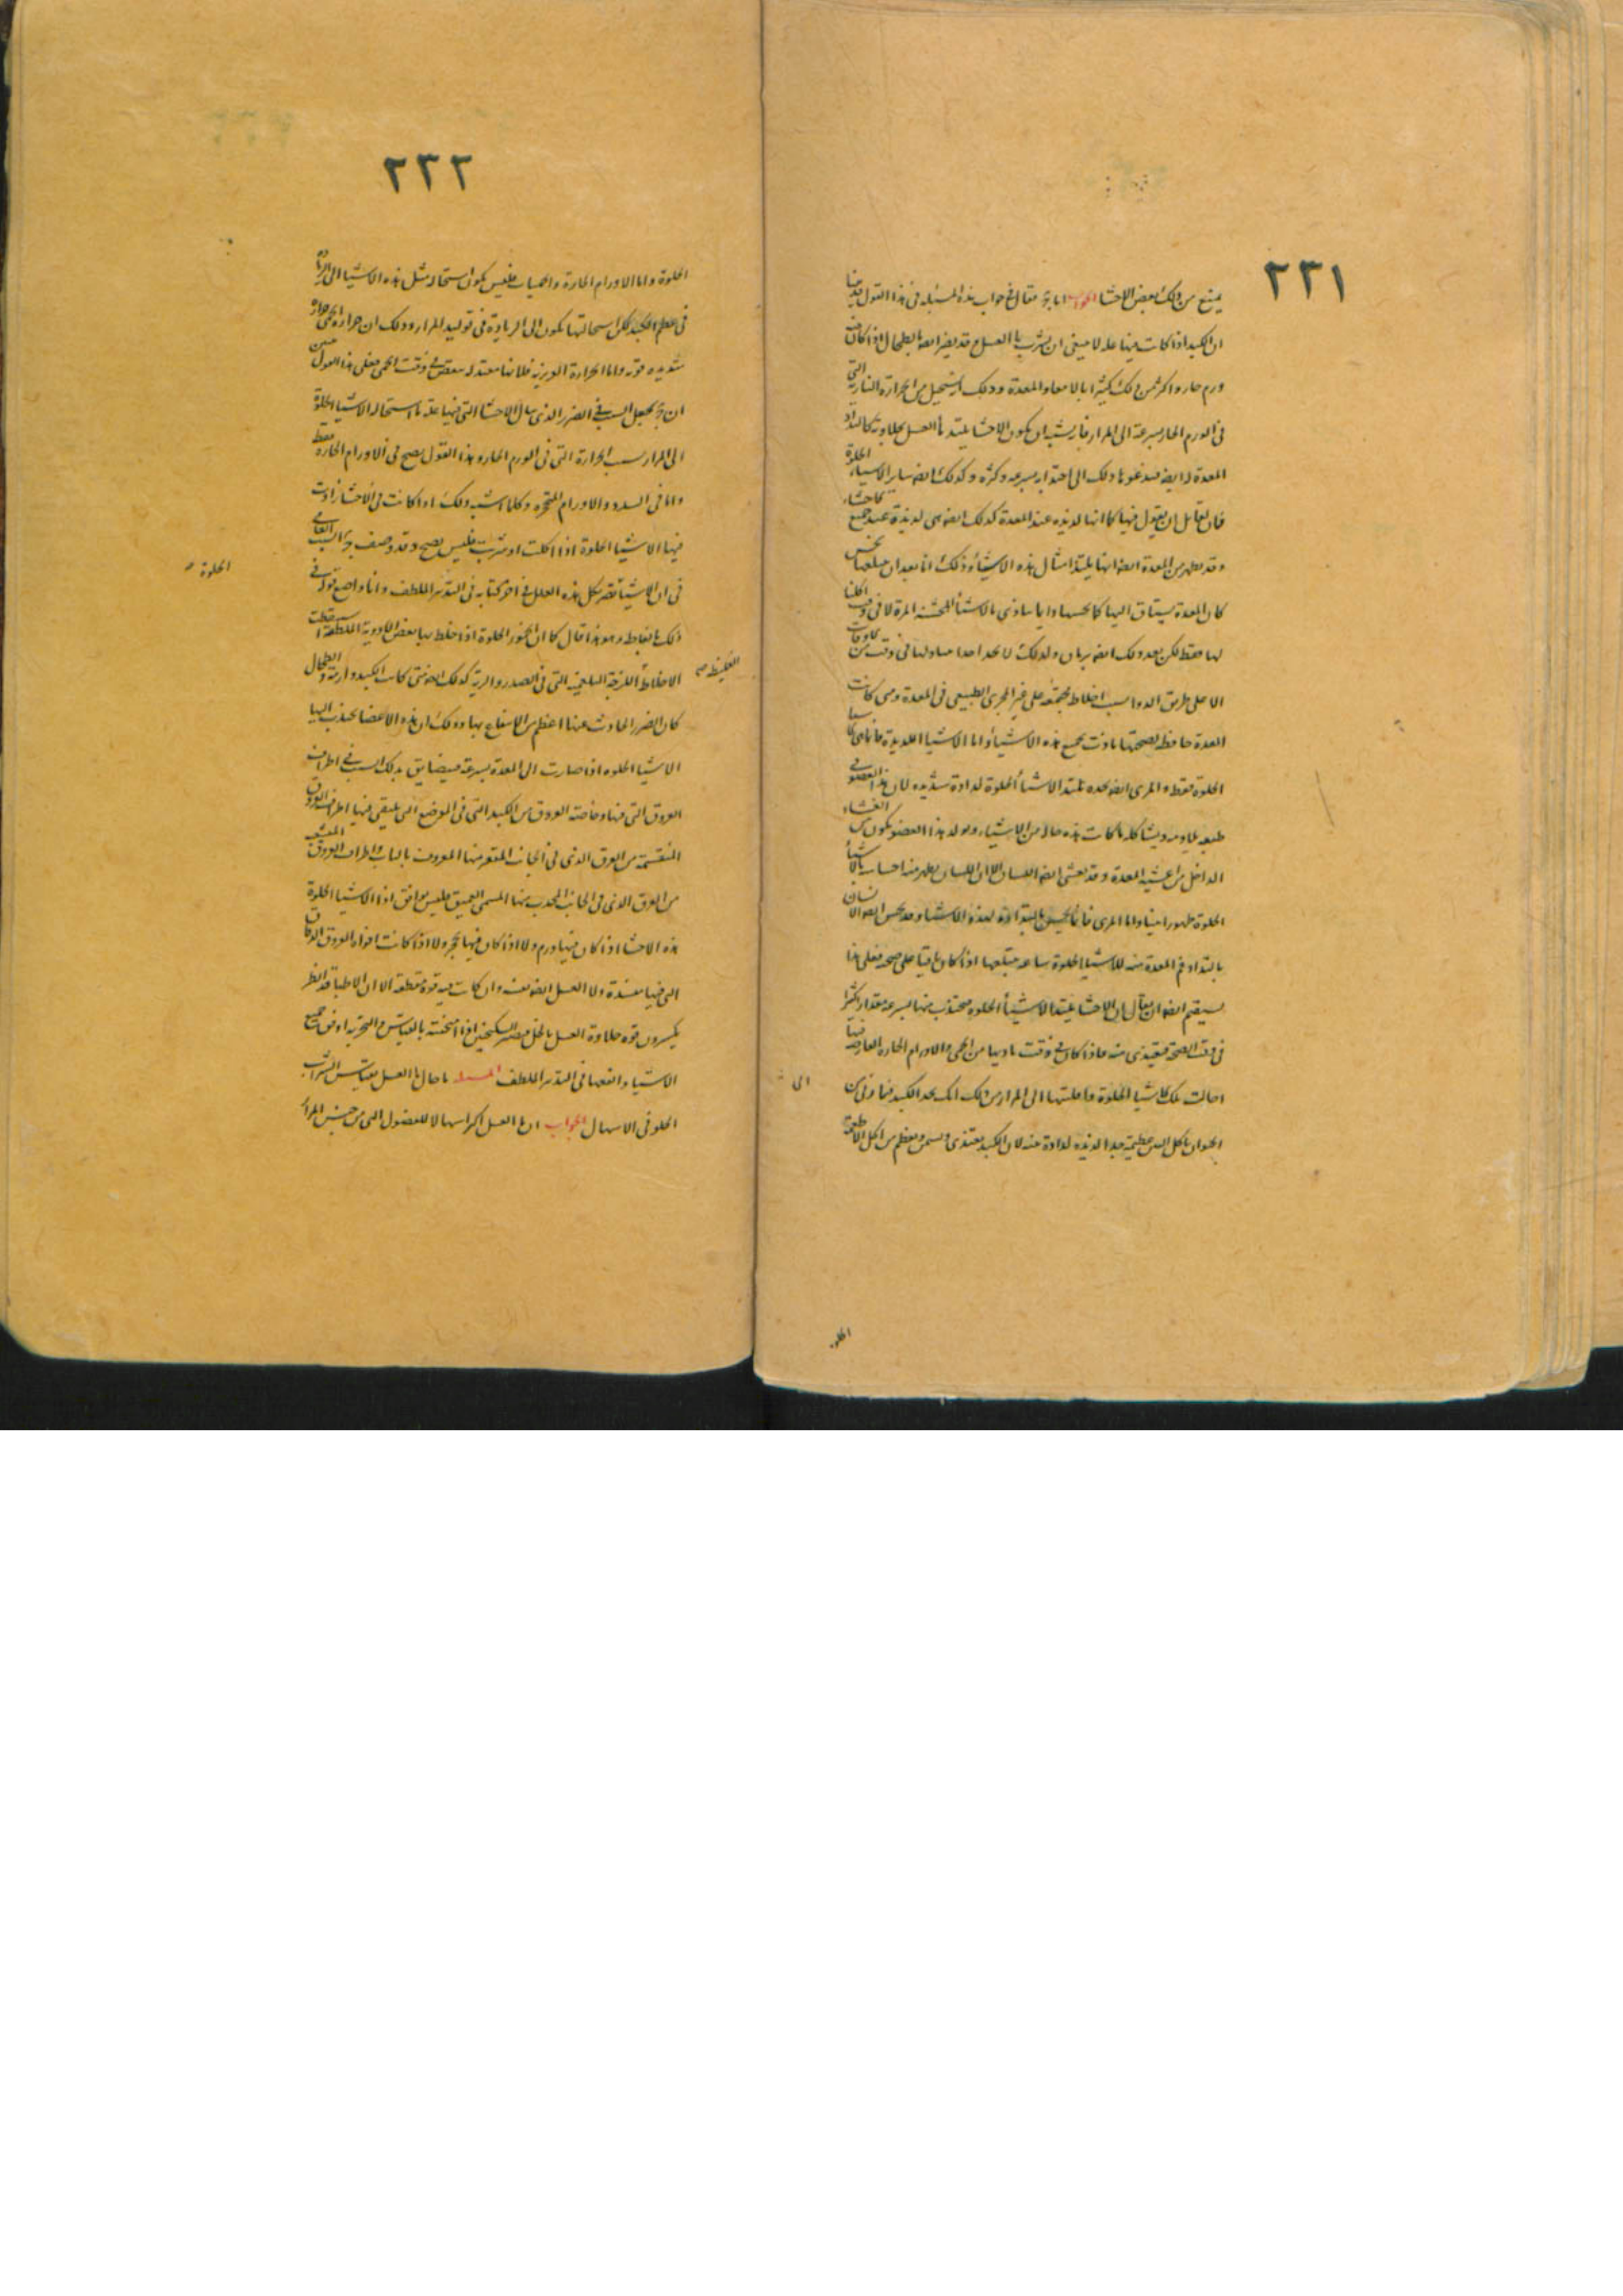 ٢٣١
يمنع من ذلك بعض الاحشا الجواب اما ج فقال في جواب هذه المسئله في هذا القول قدمنا
ان الكبد اذا كانت بها عله لا ينبغي ان يشرب ما العسل وقد يضر ايضا بالطحال اذا كان فيه
ورم حار واكثر من ذلك كثيرا بالامعاء والمعدة وذلك انه يستحيل من الحرارة النارية التي
في الورم الحار بسرعة الى المرار فانه يشبه ان يكون الاحشا يلتذ بما العسل بحلاوته كالتذاذ
المعدة به ايضا فيدعوها ذلك الى اجتذابه بسرعه وكثره وكذلك ايضا ساير الاشياء الحلوة
فان لقائل ان يقول فيها كما انها لذيذه عند المعدة كذلك ايضا هي لذيذة عند جميع الاحشاء
وقد يظهر من المعدة ايضا انها يلتذ امثال هذه الاشياء وذلك انا بعد ان نبتلعها نحس
كان المعدة يشتاق اليها
لها فقط لكن بعد ذلك ايضا ولذلك لا نجد احدا يتناولها في وقت من الاوقات
الا على طريق الدوا بسبب اخلاط مجتمعة على غير المجرى الطبيعي في المعدة ومتى كانت
المعدة حافظه لصحتها تاذت بجميع هذه الاشياء واما الاشيا اللذيذة فانما هي
الحلوة فقط والمرى ايضا نجده يلتذ الاشياء الحلوة لذاذة شديده لان هذا العضو في
طبعه يلاومه ويشاكله ما كانت هذه حاله من الاشياء وتولد هذا العضو يكون من الغشاء
الداخل من اغشيه المعدة وقد يغشى ايضا اللسان الا ان اللسان يظهر منه احساسه بالاشياء
الحلوة ظهورا بينا واما المرى فانما يحس بالتذاذه لهذه الاشياء وقد يحس ايضا الانسان
بالتذاذ فم المعدة منه للاشيا الحلوة ساعه يبتلعها اذا كان باقيا على صحته فعلى هذا
يستقيم ايضا ان يقال ان الاحشا يلتذ الاشياء الحلوه فيجتذب منها بسرعه مقدارا كثيرا
في وقت الصحة فيغتذى منه فاذا كان في وقت تاذيها من الحمى والاورام الحاره العارضه فيها
احالت تلك الاشيا الحلوة وقلبتها الى المرار من ذلك انك تجد الكبد
الحيوان ياكل التين عظيمه جدا لذيذه لذاذة منه لان الكبد يغتذى ويسمن ويعظم من اكل الاطعمة
الى
الحلوة
٢٣٢
الحلوة واما الاورام الحارة والحميات فليس يكون استحاله مثل هذه الاشيا الى الزيادة
في عظم الكبد لكن استحالتها يكون الى الزيادة في توليد المرار وذلك ان حرارة الحمى حرارة
شديده قويه واما الحرارة الغريزيه فلانها معتدله ينقص في وقت الحمى فعلى هذا القول حسن
ان ج يجعل السبب في الضرر الذي ينال الاحشا التي فيها عله ما استحاله الاشيا الحلوة
الى المرار بسبب الحرارة التي في الورم الحار وهذا القول يصح في الاورام الحارة فقط
واما في السدد والاورام المتحجره وكلما اشبه ذلك اذا كانت في الاحشا زادت
فيها الاشيا الحلوة اذا اكلت او شربت فليس يصح وقد وصف ج السبب العامي
في ان الاشياء تضر بكل هذه العلل في اخر كتابه في التدبير الملطف وانا واضع قوله في
ذلك بالفاظه وهو هذا قال كما ان الخمور الحلوة اذا خلط بها بعض الادوية الملطفة قطعت
الاخلاط اللزجة البلغمية التي في الصدر والرية كذلك ايضا متى كانت الكبد وارمة والطحال
كان الضرر الحادث عنها اعظم من الانتفاع بها وذلك ان هذه الاعضا يجتذب اليها
الاشيا الحلوه اذا صارت الى المعدة بسرعة فيضايق بذلك السبب في اطراف
العروق التي فيها وخاصة العروق من الكبد التي في الموضع التي يلتقي فيها اطراف العروق
المنقسمة من العرق الذي في الجانب المقعر منها المعروف بالباب واطراف العروق المنشعبه
من العرق الذي في الجانب المحدب منها المسمى العميق فليس يوافق اذا الاشيا الحلوة
هذه الاحشا اذا كان فيها ورم ولا اذا كان فيها تحجر ولا اذا كانت افواه العروق الدقاق
التي فيها منسدة ولا العسل ايضا نفسه وان كانت فيه قوة مقطعه الا ان الاطبا قد انظر
يكسرون قوه حلاوة العسل بالخل فيصير السكنجبين اذا امتحنته بالقياس والتجربه اوفق جميع
الاشياء وانفعها في التدبير الملطف المسئله ما حال ما العسل بقياس الشراب
الحلو في الاسهال الجواب ان ما العسل اكثر اسهالا للفضول التي من جنس المرار
الحلوة صح
الغليظه صح